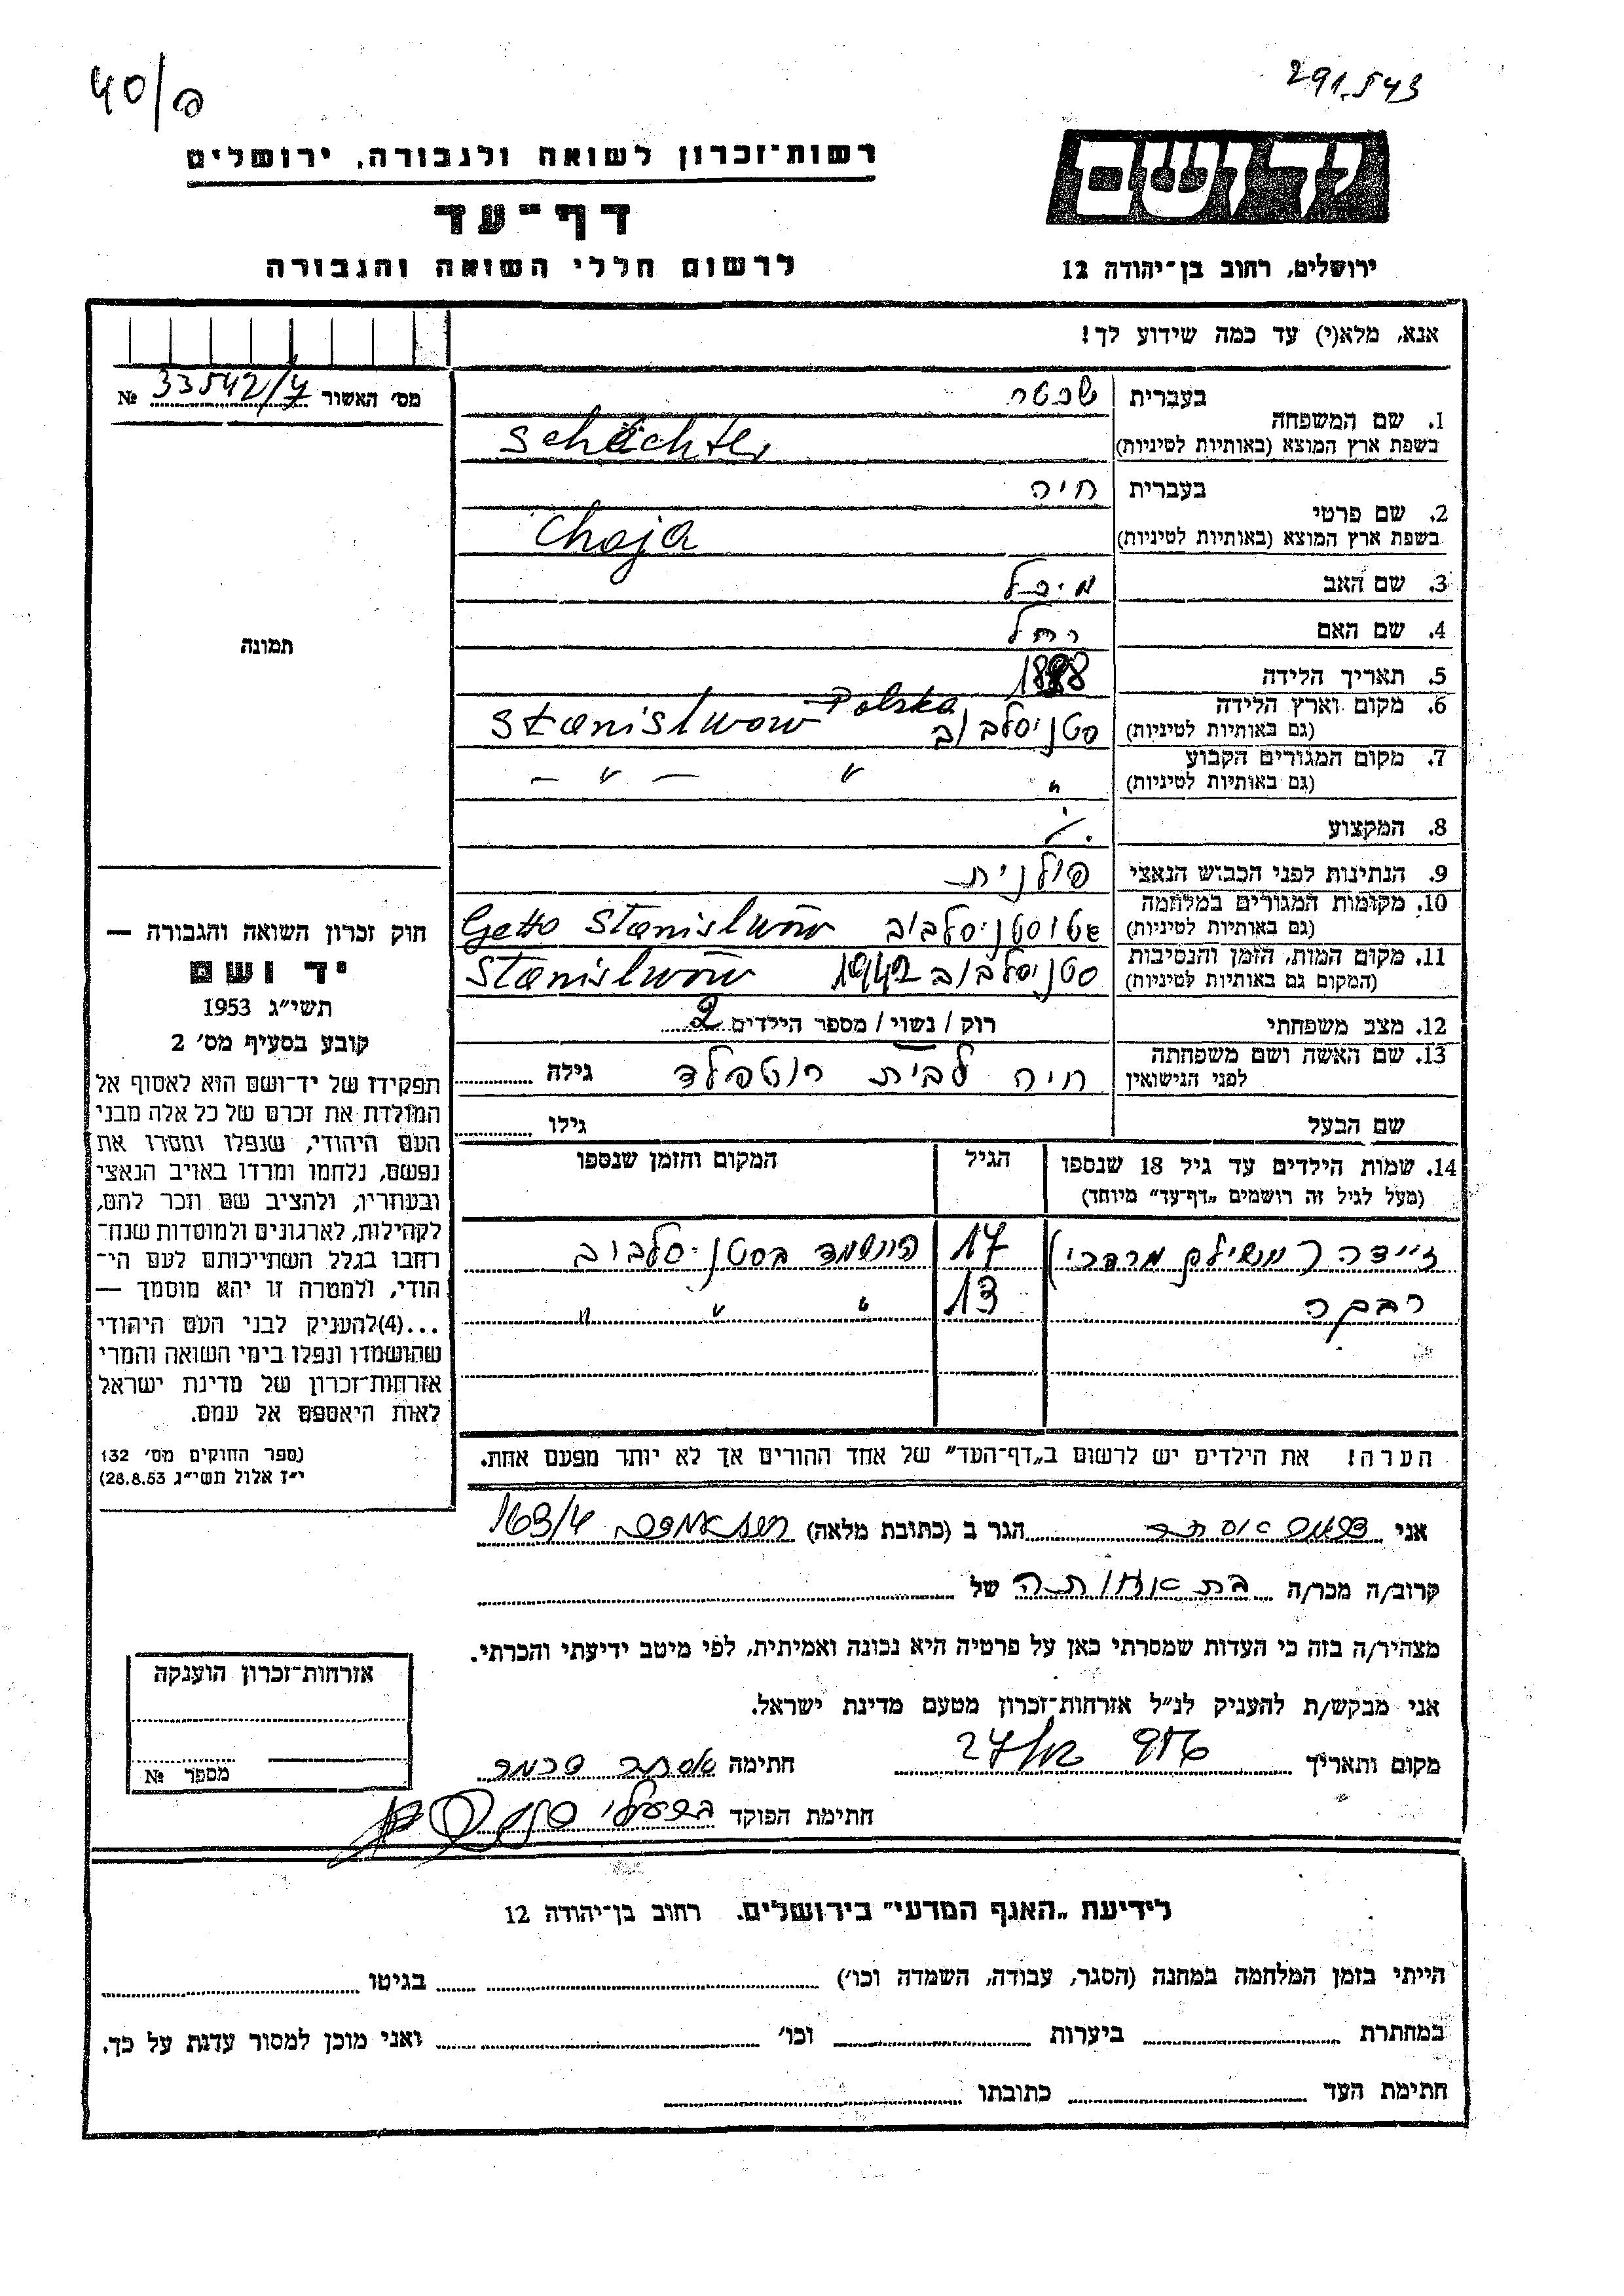 40/ס
291.543
רשות־זכרון לשואה ולגבורה, ירושלים
דף־עד
לרשום חללי השואה והגבורה
יד ושם
ירושלים, רחוב בן־יהודה 12
אנא, מלא(י) עד כמה שידוע לך!
מס' האשור 33542/7 №
תמונה
1. שם המשפחה
בעברית שכטר
בשפת ארץ המוצא (באותיות לטיניות) Schächter
2. שם פרטי
בעברית חיה
בשפת ארץ המוצא (באותיות לטיניות) Chaja
3. שם האב מיכל
4. שם האם רחל
5. תאריך הלידה 1888
6. מקום וארץ הלידה
(גם באותיות לטיניות) סטניסלבוב Stanislwow Polska
7. מקום המגורים הקבוע
(גם באותיות לטיניות) " " — " —
8. המקצוע
9. הנתינות לפני הכבוש הנאצי פולנית
10. מקומות המגורים במלחמה
(גם באותיות לטיניות) גטו סטניסלבוב Getto Stanislwów
11. מקום המות, הזמן והנסיבות
(המקום גם באותיות לטיניות) סטניסלבוב 1942 Stanislwów
12. מצב משפחתי רוק / נשוי / מספר הילדים 2
13. שם האשה ושם משפחתה
לפני הנישואין חיה לבית רוטפלד גילה
שם הבעל גילו
14. שמות הילדים עד גיל 18 שנספו הגיל המקום והזמן שנספו
(מעל לגיל זה רושמים „דף־עד" מיוחד)
זיידה (משילם מרדכי) 17 הושמד בסטניסלבוב
רבקה 13 " " "
הערה! את הילדים יש לרשום ב„דף־העד" של אחד ההורים אך לא יותר מפעם אחת.
חוק זכרון השואה והגבורה —
יד ושם
תשי"ג 1953
קובע בסעיף מס' 2
תפקידו של יד־ושם הוא לאסוף אל
המולדת את זכרם של כל אלה מבני
העם היהודי, שנפלו ומסרו את
נפשם, נלחמו ומרדו באויב הנאצי
ובעוזריו, ולהציב שם וזכר להם,
לקהילות, לארגונים ולמוסדות שנח־
רבו בגלל השתייכותם לעם הי־
הודי, ולמטרה זו יהא מוסמך —
...(4)להעניק לבני העם היהודי
שהושמדו ונפלו בימי השואה והמרי
אזרחות־זכרון של מדינת ישראל
לאות היאספם אל עמם.
(ספר החוקים מס' 132
י"ז אלול תשי"ג 28.8.53)
אני אסתר הגר ב (כתובת מלאה) 163/4
קרוב/ה מכר/ה בת אחותה של
מצהיר/ה בזה כי העדות שמסרתי כאן על פרטיה היא נכונה ואמיתית, לפי מיטב ידיעתי והכרתי.
אני מבקש/ת להעניק לנ"ל אזרחות־זכרון מטעם מדינת ישראל.
מקום ותאריך 956 27/ חתימה אסתר
חתימת הפוקד
אזרחות־זכרון הוענקה
מספר №
לידיעת „האגף המדעי" בירושלים. רחוב בן־יהודה 12
הייתי בזמן המלחמה במחנה (הסגר, עבודה, השמדה וכו') בגיטו
במחתרת ביערות וכו' ואני מוכן למסור עדות על כך.
חתימת העד כתובתו